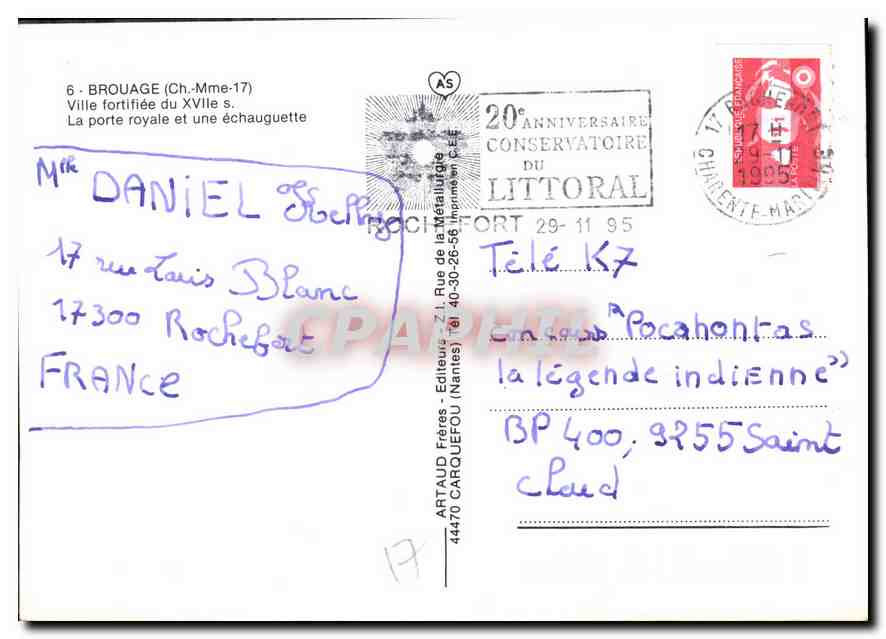 6 - BROUAGE (Ch.-Mme-17)
Ville fortifiée du XVIIe s.
La porte royale et une échauguette
Mlle DANIEL Kelly
17 rue Louis Blanc
17300 Rochefort
FRANCE
17
AS
ARTAUD Frères - Editeurs - Z.I. Rue de la Métallurgie
44470 CARQUEFOU (Nantes) Tél. 40-30-26-56 Imprimé en C.E.E.
20e ANNIVERSAIRE
CONSERVATOIRE
DU
LITTORAL
ROCHEFORT 29-11 95
RÉPUBLIQUE FRANÇAISE
17 ROCHEFORT
17 H
1995
CHARENTE-MARITIME
Télé K7
concours "Pocahontas
la légende indienne"
BP 400, 9255 Saint
Cloud
CPAPHIL